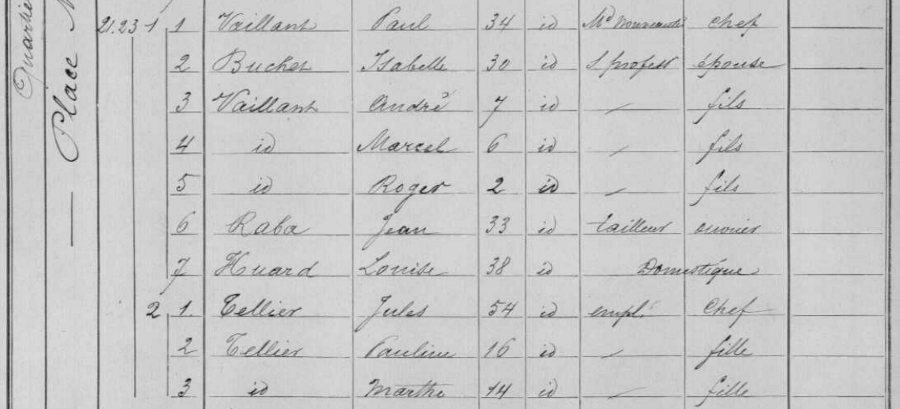 Quartier
Place
21.23 1 1 Vaillant Paul 34 id Md nouveautés chef
2 Buchet Isabelle 30 id S profess épouse
3 Vaillant André 7 id – fils
4 id Marcel 6 id – fils
5 id Roger 2 id – fils
6 Raba Jean 33 id tailleur ouvrier
7 Huard Louise 38 id Domestique
2 1. Tellier Jules 54 id empl. Chef
2 Tellier Pauline 16 id – fille
3 id Marthe 14 id – fille